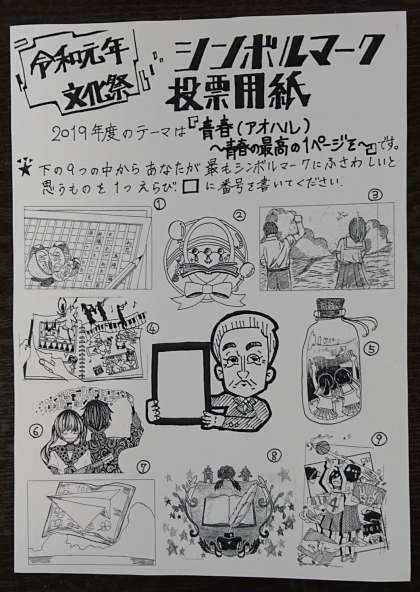 令和元年
文化祭
シンボルマーク
投票用紙
2019年度のテーマは『青春(アオハル)
～青春の最高の1ページを～』です。
★下の9つの中からあなたが最もシンボルマークにふさわしいと
思うものを1つえらび、□に番号を書いてください。
①
②
③
④
⑤
⑥
⑦
⑧
⑨